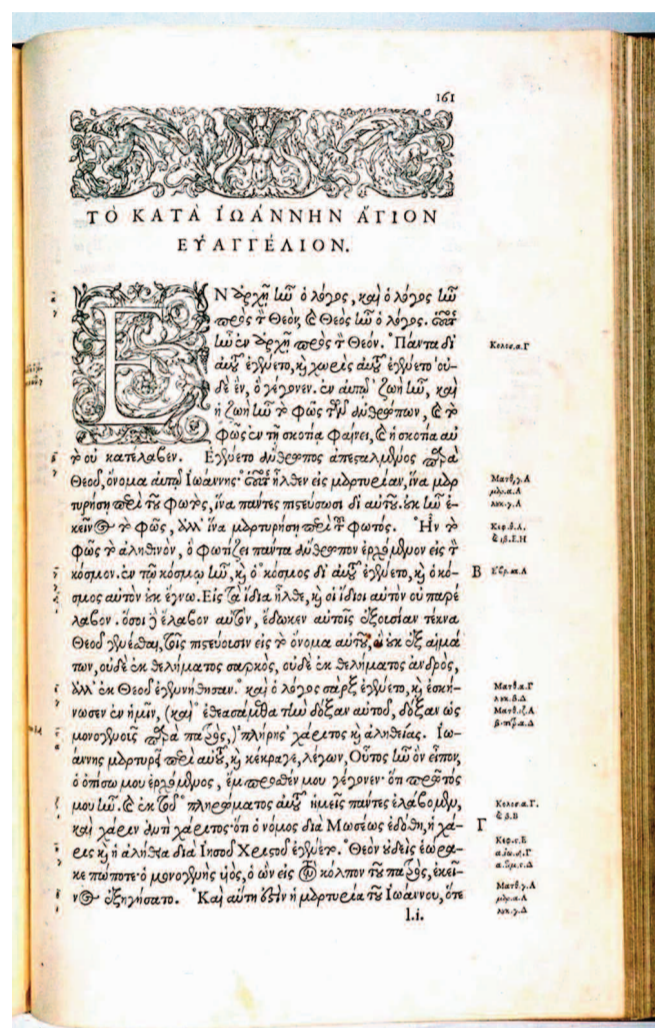 161
ΤΟ ΚΑΤΑ ἸΩΆΝΝΗΝ ἍΓΙΟΝ
ΕΥ̓ΑΓΓΈΛΙΟΝ.
ΕΝ ἀρχῇ ἦν ὁ λόγος, καὶ ὁ λόγος ἦν
πρὸς τὸν Θεόν, καὶ Θεὸς ἦν ὁ λόγος. οὗτος
ἦν ἐν ἀρχῇ πρὸς τὸν Θεόν. Πάντα δι
αὐτοῦ ἐγένετο, καὶ χωρὶς αὐτοῦ ἐγένετο οὐ-
δὲ ἕν, ὃ γέγονεν. ἐν αὐτῷ ζωὴ ἦν, καὶ
ἡ ζωὴ ἦν τὸ φῶς τῶν ἀνθρώπων, καὶ τὸ
φῶς ἐν τῇ σκοτίᾳ φαίνει, καὶ ἡ σκοτία αὐ
τὸ οὐ κατέλαβεν. Ἐγένετο ἄνθρωπος ἀπεσταλμένος παρὰ
Θεοῦ, ὄνομα αὐτῷ Ἰωάννης· οὗτος ἦλθεν εἰς μαρτυρίαν, ἵνα μαρ
τυρήσῃ περὶ τοῦ φωτός, ἵνα πάντες πιστεύσωσι δι αὐτοῦ. οὐκ ἦν ἐ-
κεῖνος τὸ φῶς, ἀλλ' ἵνα μαρτυρήσῃ περὶ τοῦ φωτός. Ἦν τὸ
φῶς τὸ ἀληθινόν, ὃ φωτίζει πάντα ἄνθρωπον ἐρχόμενον εἰς τὸν
κόσμον. ἐν τῷ κόσμῳ ἦν, καὶ ὁ κόσμος δι αὐτοῦ ἐγένετο, καὶ ὁ κό-
σμος αὐτὸν οὐκ ἔγνω. Εἰς τὰ ἴδια ἦλθε, καὶ οἱ ἴδιοι αὐτὸν οὐ παρέ
λαβον. ὅσοι δὲ ἔλαβον αὐτόν, ἔδωκεν αὐτοῖς ἐξουσίαν τέκνα
Θεοῦ γενέσθαι, τοῖς πιστεύουσιν εἰς τὸ ὄνομα αὐτοῦ, οἳ οὐκ ἐξ αἱμά
των, οὐδὲ ἐκ θελήματος σαρκός, οὐδὲ ἐκ θελήματος ἀνδρός,
ἀλλ' ἐκ Θεοῦ ἐγεννήθησαν. καὶ ὁ λόγος σὰρξ ἐγένετο, καὶ ἐσκή-
νωσεν ἐν ἡμῖν, (καὶ ἐθεασάμεθα τὴν δόξαν αὐτοῦ, δόξαν ὡς
μονογενοῦς παρὰ πατρός,) πλήρης χάριτος καὶ ἀληθείας. Ἰω-
άννης μαρτυρεῖ περὶ αὐτοῦ, καὶ κέκραγε, λέγων, Οὗτος ἦν ὃν εἶπον,
ὁ ὀπίσω μου ἐρχόμενος, ἔμπροσθέν μου γέγονεν· ὅτι πρῶτός
μου ἦν. καὶ ἐκ τοῦ πληρώματος αὐτοῦ ἡμεῖς πάντες ἐλάβομεν,
καὶ χάριν ἀντὶ χάριτος· ὅτι ὁ νόμος διὰ Μωσέως ἐδόθη, ἡ χά-
ρις καὶ ἡ ἀλήθεια διὰ Ἰησοῦ Χριστοῦ ἐγένετο. Θεὸν οὐδεὶς ἑώρα-
κε πώποτε· ὁ μονογενὴς υἱός, ὁ ὢν εἰς τὸν κόλπον τοῦ πατρός, ἐκεῖ-
νος ἐξηγήσατο. Καὶ αὕτη ἐστὶν ἡ μαρτυρία τοῦ Ἰωάννου, ὅτε
l.i.
Κολος.α.Γ
Ματθ.γ.Α
μάρ.α.Α
λυκ.γ.Α
Κεφ.θ.Α.
καὶ ιβ.Ε.Η
Β Ἑβρ.ια.Α
Ματθ.α.Γ
λυκ.β.Δ
Ματθ.ιζ.Α
β.πέτρ.α.Δ
Κολος.α.Γ.
καὶ β.Β
Γ
Κεφ.ς.Ε
α.ἰω.δ.Γ
α.τιμ.ς.Δ
Ματθ.γ.Α
μάρ.α.Α
λυκ.γ.Δ